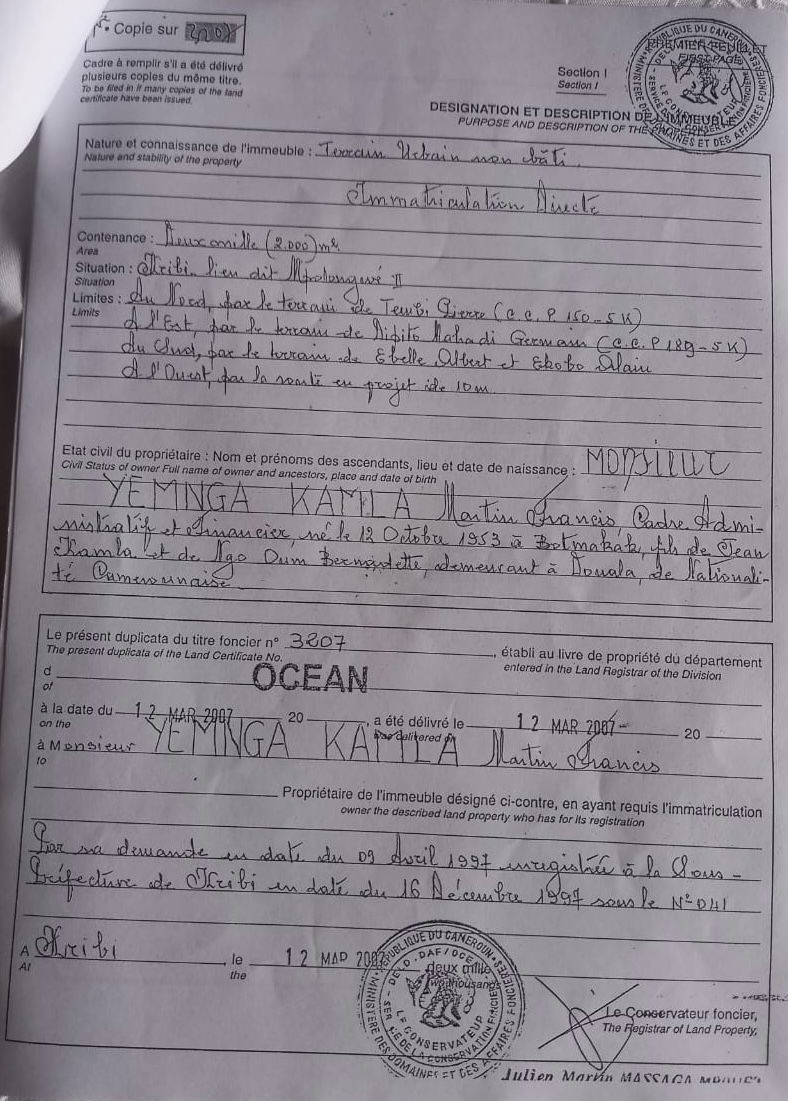 Copie sur
Cadre à remplir s'il a été délivré
plusieurs copies du même titre.
To be filed in if many copies of the land
certificate have been issued.
PREMIER FEUILLET
FIRST PAGE
Section I
Section I
DESIGNATION ET DESCRIPTION DE L'IMMEUBLE
PURPOSE AND DESCRIPTION OF THE
Nature et connaissance de l'immeuble : Terrain Urbain non bâti
Nature and stability of the property
Immatriculation Directe
Contenance : Deux mille (2.000) m²
Area
Situation : Kribi lieu dit Mpolongwé II
Situation
Limites : Au Nord, par le terrain de Tembi Pierre (C.C.P. 150-5K)
Limits
A l'Est, par le terrain de Dipito Mahadi Germain (C.C.P 189-5K)
Au Sud, par le terrain de Ebelle Albert et Ekobo Alain
A l'Ouest, par la route en projet de 10m
Etat civil du propriétaire : Nom et prénoms des ascendants, lieu et date de naissance : Monsieur
Civil Status of owner Full name of owner and ancestors, place and date of birth
YEMNGA KAMLA Martin Francis, Cadre Admi-
nistratif et Financier, né le 12 Octobre 1953 à Botmakak, fils de Jean
Kamla et de Ngo Oum Bernadette, demeurant à Douala, de Nationali-
té Camerounaise
Le présent duplicata du titre foncier n° 3207, établi au livre de propriété du département
The present duplicata of the Land Certificate No. entered in the Land Registrar of the Division
d OCEAN
of
à la date du 12 MAR 2007 20, a été délivré le 12 MAR 2007 20
on the delivered
à Monsieur YEMNGA KAMLA Martin Francis
to
Propriétaire de l'immeuble désigné ci-contre, en ayant requis l'immatriculation
owner the described land property who has for its registration
Par sa demande en date du 09 Avril 1997 enregistrée à la Sous-
Préfecture de Kribi en date du 16 Décembre 1997 sous le N° 041
A Kribi, le 12 MAR 2007 deux mille
At the two thousand
REPUBLIQUE DU CAMEROUN
MINISTERE DES DOMAINES ET DES AFFAIRES FONCIERES
LE CONSERVATEUR
Le Conservateur foncier,
The Registrar of Land Property,
Julien Martin MASSAGA